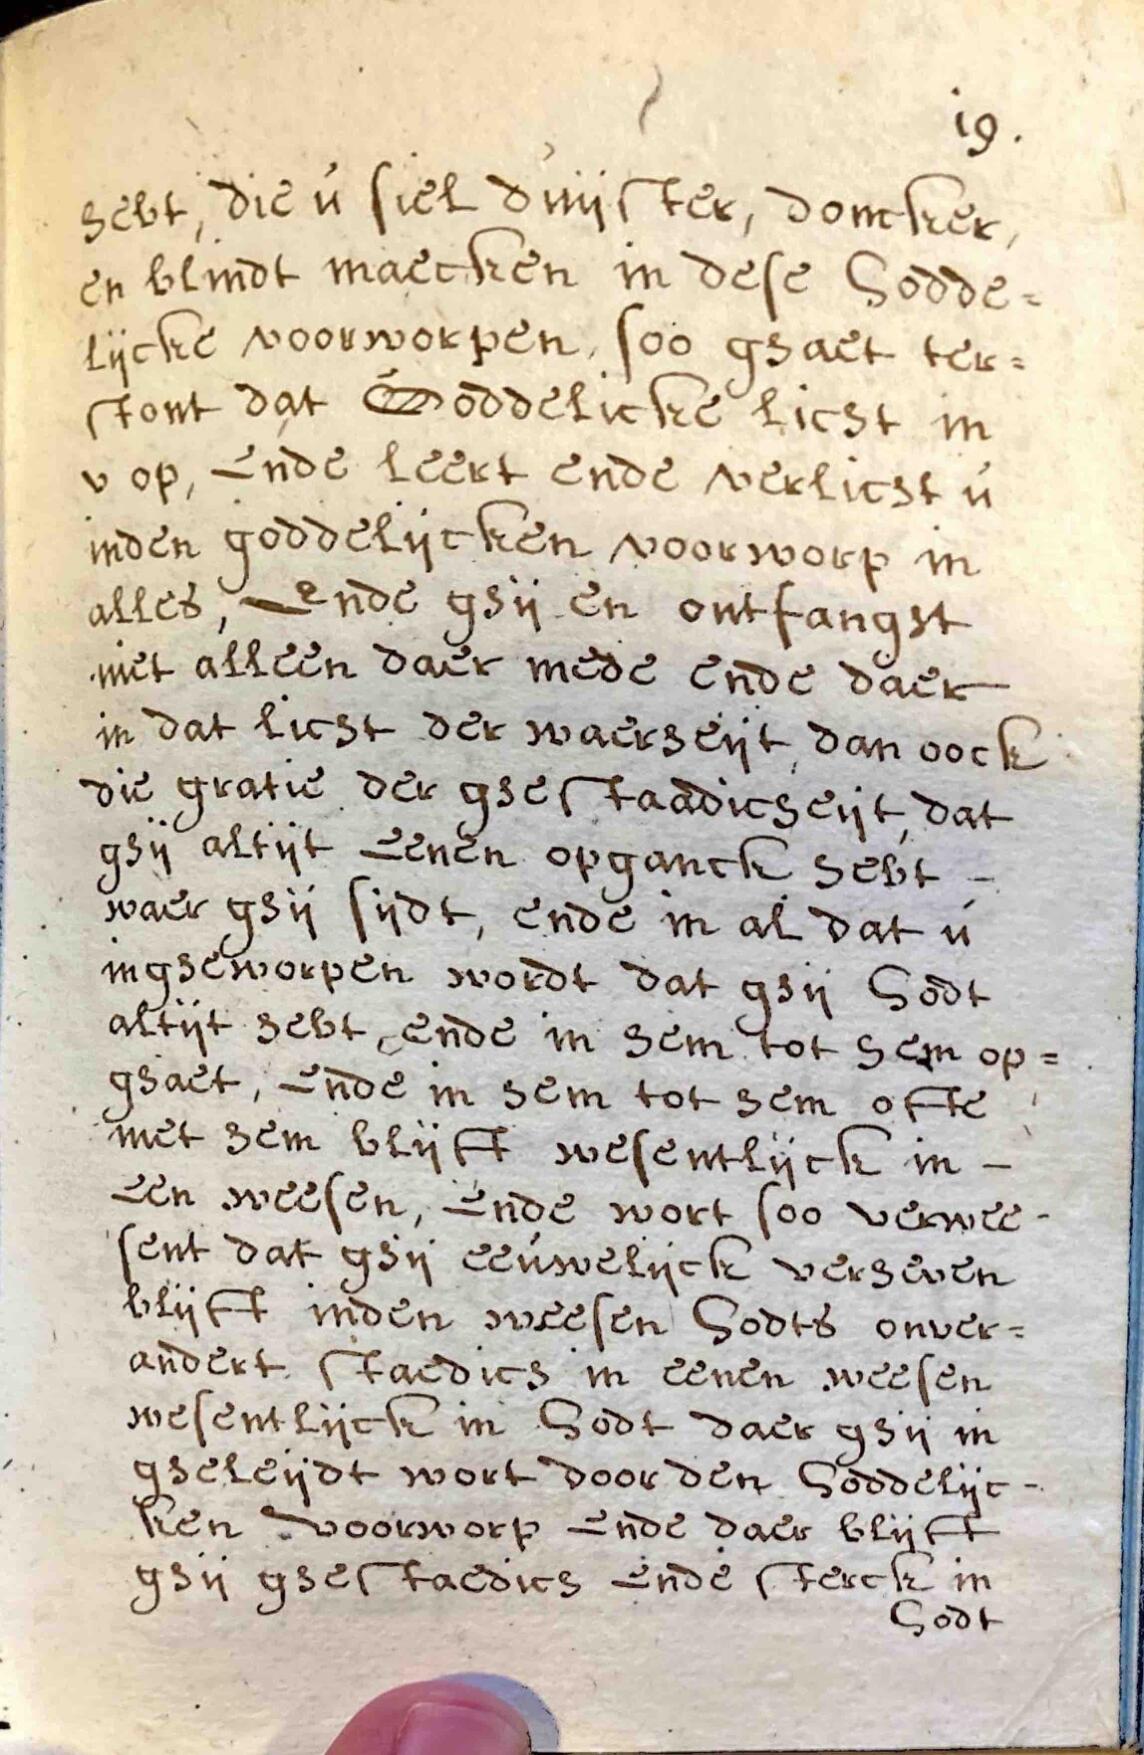 19.
hebt, die ú siel duijster, domcker,
en blindt maecken in dese Godde=
lijcke voorworpen, soo ghaet ter=
stont dat Goddelicke licht in
v op, Ende leert ende verlicht ú
inden goddelijcken voorworp in
alles, Ende ghij en ontfanght
niet alleen daer mede ende daer
in dat licht der waerheijt, dan oock
die gratie der ghestaadicheijt, dat
ghij altijt Eenen opganck hebt -
waer ghij sijdt, ende in al dat ú
ingheworpen wordt dat ghij Godt
altijt hebt, ende in hem tot hem op=
ghaet, Ende in hem tot hem ofte
met hem blijft wesentlijck in -
Een weesen, Ende wort soo verwee-
sent dat ghij eeúwelijck verheven
blijft inden weesen Godts onver=
andert staedich in eenen weesen
wesentlijck in Godt daer ghij in
gheleijdt wort door den Goddelijc-
ken Voorworp Ende daer blijft
ghij ghestaedich Ende sterck in
Godt